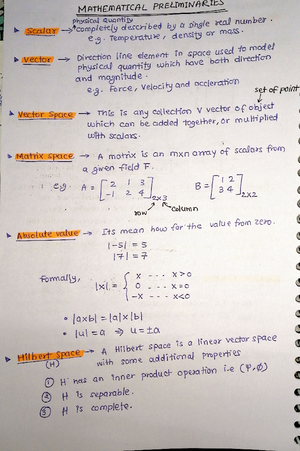 MATHEMATICAL PRELIMINARIES
Physical Quantity
Scalar → Completely described by a single real number.
e.g. Temperature, density or mass.
Vector → Direction line element in space used to model
physical quantity which have both direction
and magnitude.
e.g. Force, Velocity and accleration
set of point
Vector Space → This is any collection V vector of object
which can be added together, or multiplied
with scalars.
Matrix space → A matrix is an mxn array of scalars from
a given field F.
e.g. A = [2 1 3
-1 2 4]2x3 B = [1 2
3 4]2x2
row column
Absolute value → Its mean how for the value from zero.
|-5| = 5
|7| = 7
Formally,
|x| = { x ---- x>0
0 ---- x=0
-x ---- x<0
• |axb| = |a|x|b|
• |u| = a ⇒ u = ±a
Hilbert Space → A Hilbert space is a linear vector space
(H) with some additional Properties
① H has an inner product operation i.e (Ψ,Φ)
② H is separable.
③ H is complete.